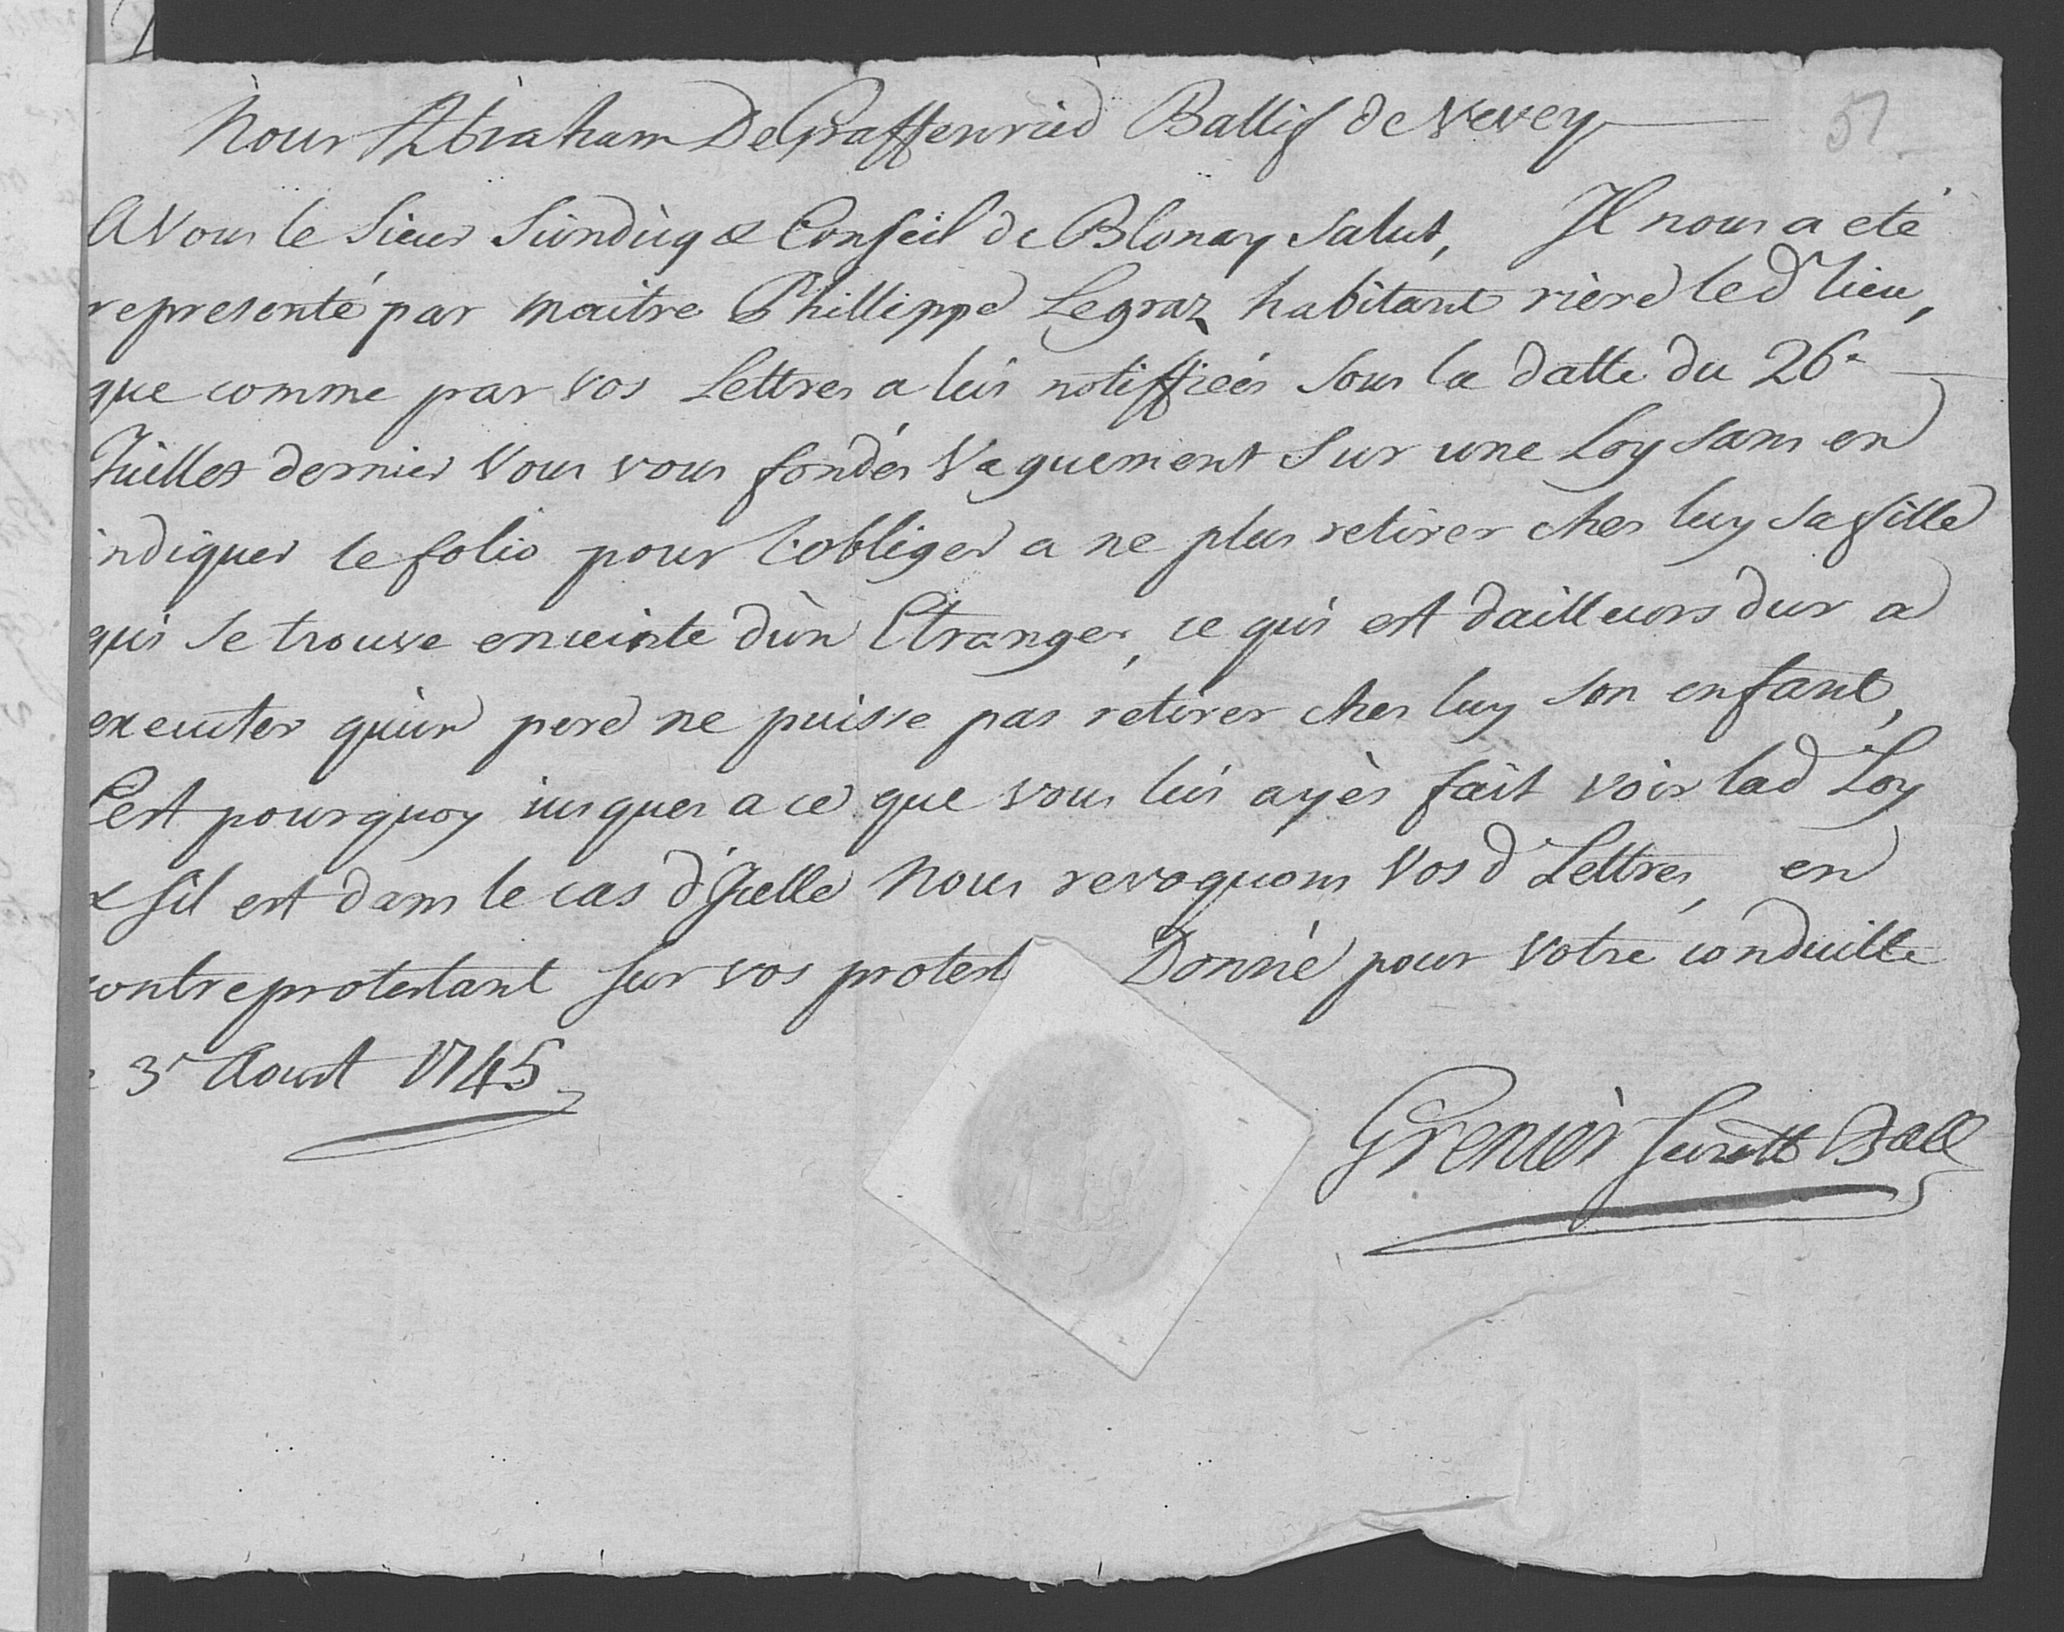 51
Nous Abraham De Graffenried Ballif de Vevey
A Vous le Sieur Sindiq & Conseil de Blonay Salut, Il nous a eté
representé par maitre Phillippe Legraz habitant riere led lieu,
que comme par vos Lettres a lui notiffieés sous la datte du 26e
Juillet dernier Vous vous fondés Vaguement sur une Loy sans en
indiquer le folio pour l'obliger a ne plus retirer ches luy sa fille
qui se trouve enceinte d'un Etranger, ce qui est dailleurs dur a
executer qu'un pere ne puisse pas retirer ches luy son enfant,
C'est pourquoy jusques a ce que vous lui ayès fait voir lad Loy
& sil est dans le cas d'Icelle Nous revoquons Vos d Lettres, en
contreprotestant sur vos protest Donné pour Votre conduitte
3e Aoust 1745
Grenier Secrett Ball